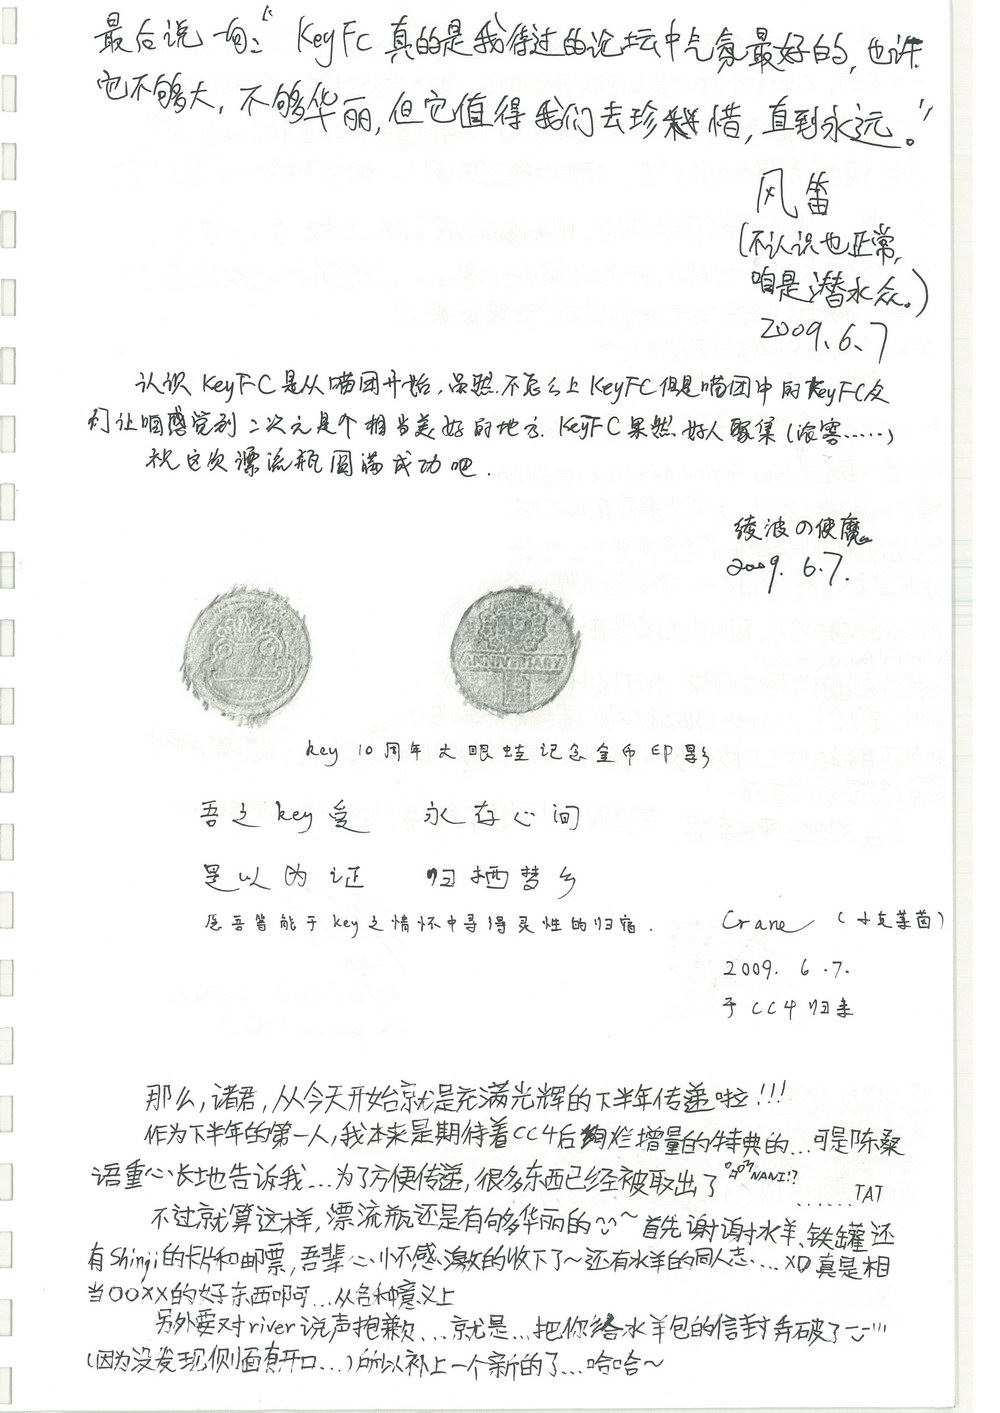 最后说一句:“KeyFC真的是我待过的论坛中气氛最好的,也许
它不够大,不够华丽,但它值得我们去珍惜,直到永远。”
风笛
(不认识也正常,
咱是潜水众。)
2009.6.7
认识KeyFC是从喵团开始,虽然不怎么上KeyFC但是喵团中的KeyFC友
们让咱感觉到二次元是个相当美好的地方.KeyFC果然好人聚集(滚……)
祝这次漂流瓶圆满成功吧.
绫波の使魔
2009. 6.7.
ANNIVERSARY
key 10周年大眼蛙记念金币印影
吾之key爱 永存心间
是以为证 归栖梦乡
愿吾皆能于key之情怀中寻得灵性的归宿.
Crane (小克莱茵)
2009. 6.7.
于CC4归来
那么,诸君,从今天开始就是充满光辉的下半年传递啦!!!
作为下半年的第一人,我本来是期待着CC4后绚烂增量的特典的...可是陈桑
语重心长地告诉我...为了方便传递,很多东西已经被取出了 NANI!?
......TAT
不过就算这样,漂流瓶还是有够华丽的~首先谢谢水羊、铁罐还
有Shinji的卡片和邮票,吾辈心怀感激的收下了~还有水羊的同人志....XD真是相
当OOXX的好东西啊呵...从各种意义上
另外要对river说声抱歉...就是...把你给水羊包的信封弄破了
(因为没发现侧面有开口...)所以补上一个新的了...哈哈~